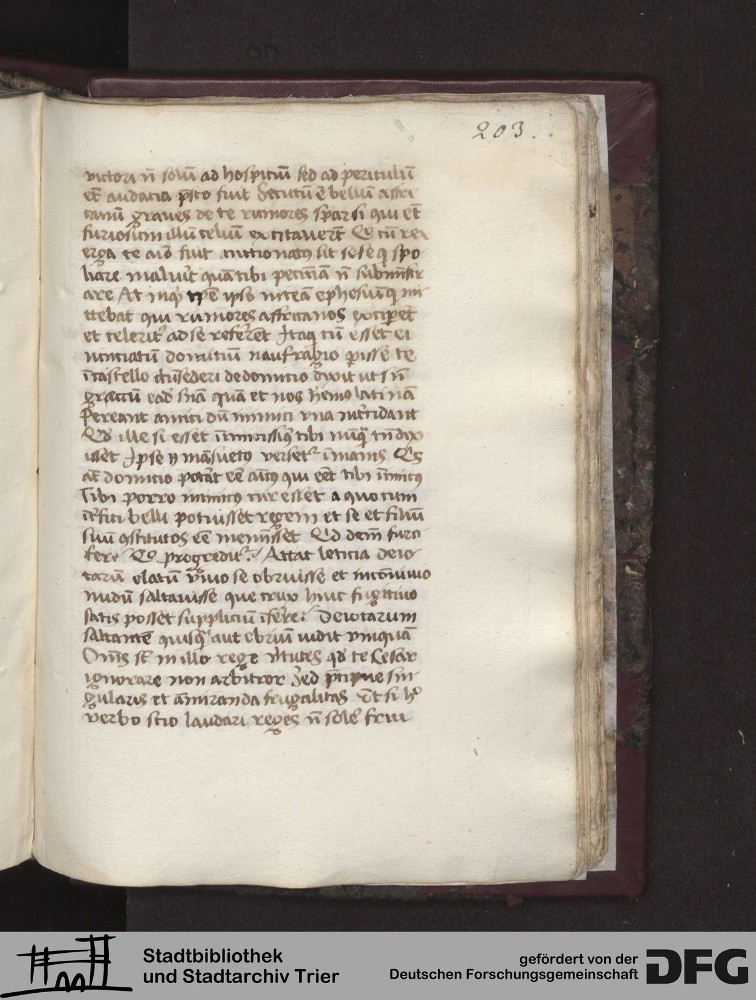 203.
victori n̄ solū ad hospitiū sed ad periculū
et̄ audacia p̄sto fuit Secutū ē bellū affri
canū graves de te rumores sparsi qui et̄
furiosum illū celiū excitaverūt Quo tū rex
erga te aīo fuit auctionatus sit sese q̨ spo
liare maluit quā tibi pecuniā n̄ subministr
are At inq̄ eo tp̄e ipso niceā ephesūq̨ mi
ttebat qui rumores affricanos exciperet
et celerit᷑ ad se referrēt Itaq̨ cū esset ei
nunciatū domitiū naufragio perisse te
ī castello circūsederi de domitio dixit versū
grecū eadē sn̄ia qua et nos hēmus latinā
Pereant amici dū inimici una intercidant
Qd̄ ille si esset inimicissim9 tibi nūq̄ tn̄ dix
isset Ipse n̄ māsuetus versus īmanis Quo
aūt domitio poterat eē amic9 qui eēt tibi īimic9
Tibi porro inimicus cur esset a quo cum
īterfici belli potuisset regem et se et filiū
suū 9stitutos eē meminisset Qd̄ deīn furci
fer Quo progredit᷑ Attat leticia deio
tarū elatū vino se obruisse et in convivio
nudū saltavisse que crux huic fugitivo
satis posset suppliciū īferre Deiotarum
saltantē quisq̄ aut ebriū vidit unquā
Om̄s st̄ in illo rege v̄tutes qd̄ te Cesar
ignorare non arbitror Sed p̄cipue sin
gularis et āmiranda frugalitas Et si hº
verbo scio laudari reges n̄ solere frui
Stadtbibliothek
und Stadtarchiv Trier
gefördert von der
Deutschen Forschungsgemeinschaft
DFG